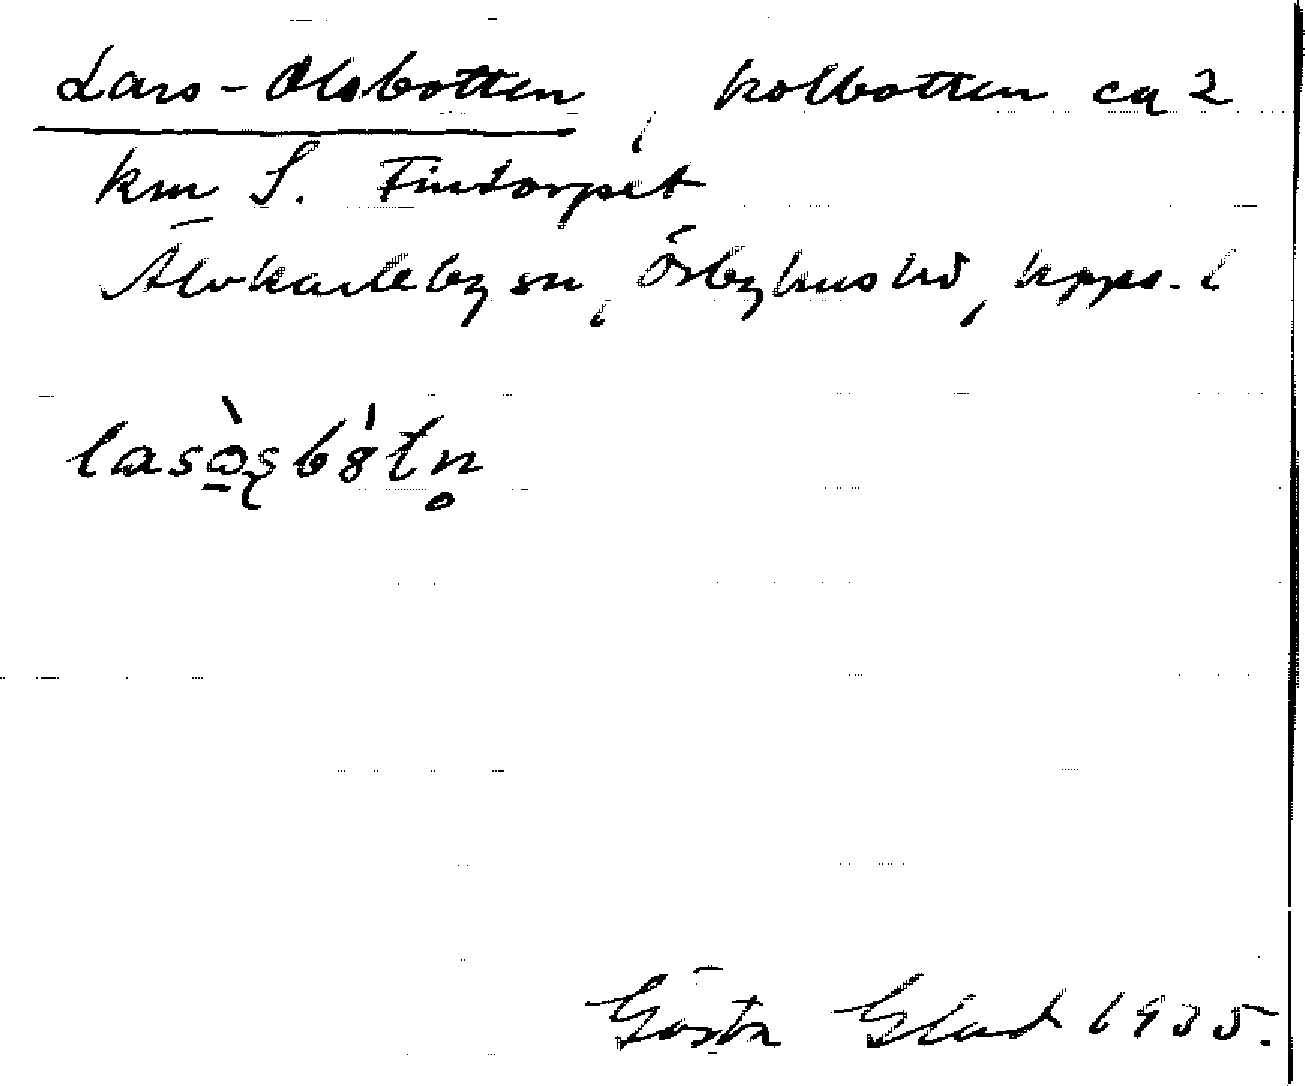 Lars-Olsbotten, kolbotten ca 2
km S. Fintorpet
Älvkarleby sn, Örbyhus hd, Upps. l
Gösta Glad 1935.